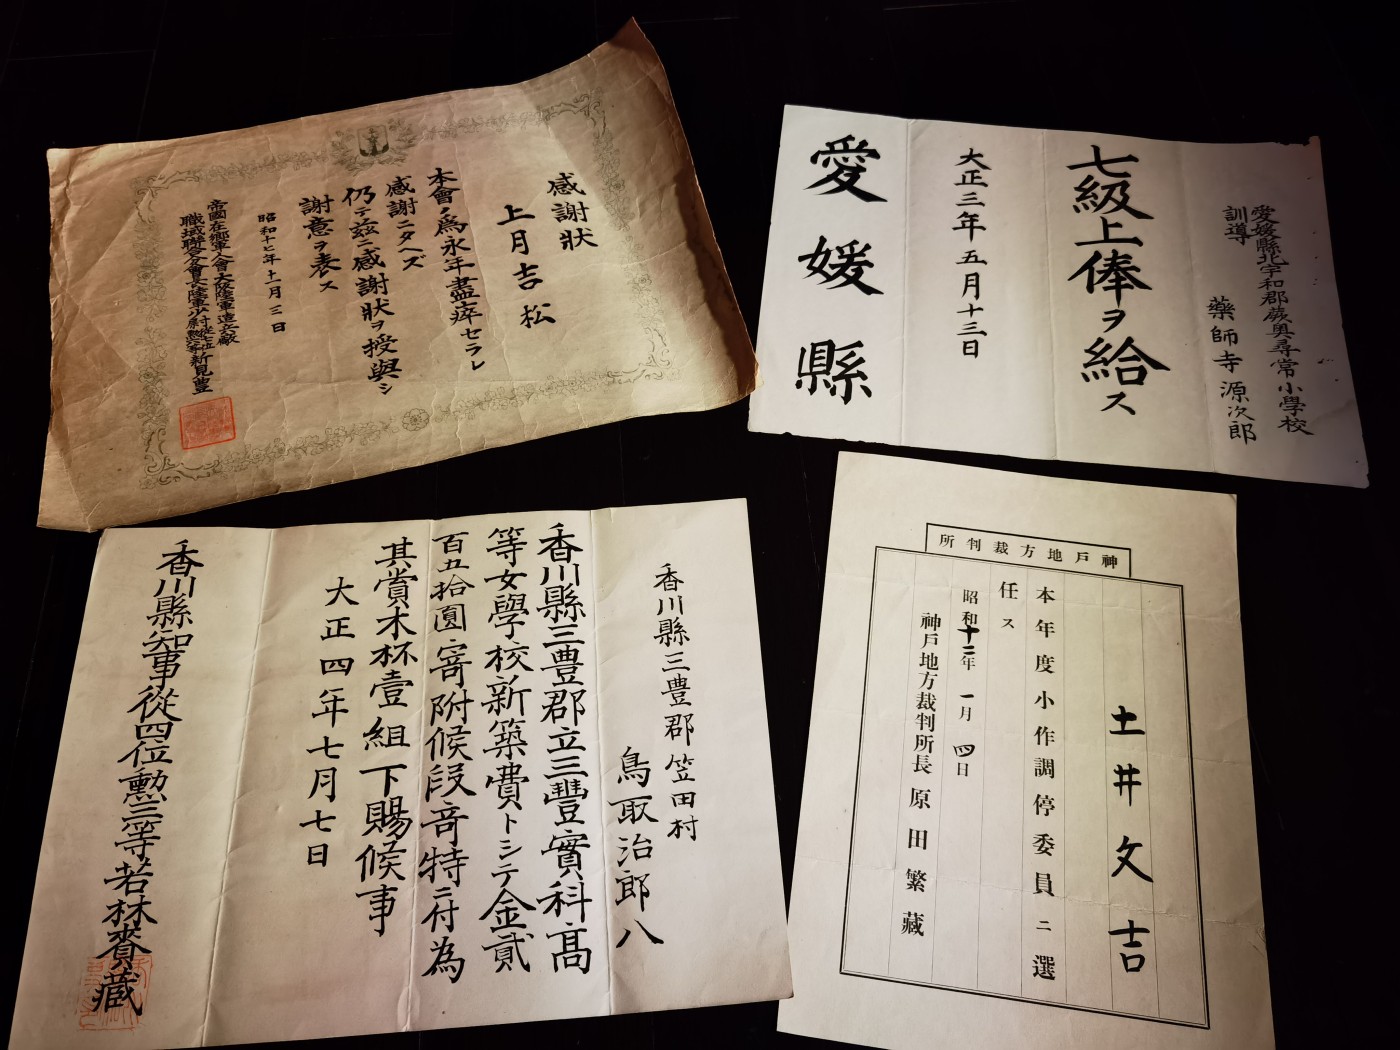 感謝狀
上月吉松
本會ノ爲永年盡瘁セラレ
感謝ニタヘズ
仍テ玆ニ感謝狀ヲ授與シ
謝意ヲ表ス
昭和十七年十一月三日
帝國在鄕軍人會大阪陸軍造兵廠
職域聯合分會長陸軍少尉從七位勲六等新見豊
愛媛縣北宇和郡蕨奥尋常小學校
訓導
藥師寺源次郎
七級上俸ヲ給ス
大正三年五月十三日
愛媛縣
香川縣三豊郡笠田村
鳥取治郎八
香川縣三豊郡立三豐實科高
等女學校新築費トシテ金貳
百五拾圓寄附候段竒特ニ付為
其賞木杯壹組下賜候事
大正四年七月七日
香川縣知事從四位勲三等若林賚藏
神戸地方裁判所
土井文吉
本年度小作調停委員ニ選
任ス
昭和十二年一月四日
神戸地方裁判所長原田繁藏